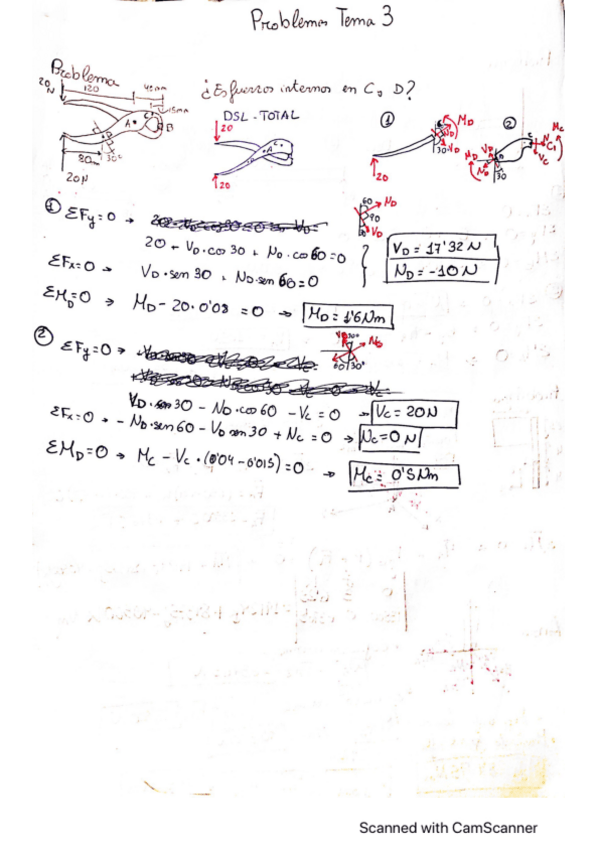 Problemas Tema 3
Problema
20 N
120
40mm
15mm
A
C
B
D
80
30°
20N
¿Esfuerzos internos en C y D?
DSL - TOTAL
20
20
A
C
①
20
30
M_D
N_D
V_D
②
M_D
V_D
N_D
D
30
C
N_C
V_C
M_C
① ΣFy=0 →
20 - V_D·cos 30 + N_D·cos 60 = 0
ΣFx=0 → V_D·sen 30 + N_D sen 60 = 0
V_D = 17'32 N
N_D = -10 N
60
90
N_D
V_D
ΣM_D=0 → M_D - 20·0'08 = 0 → M_D = 1'6 Nm
② ΣFy=0 →
V_D·sen 30 - N_D·cos 60 - V_C = 0 → V_C = 20 N
ΣFx=0 → - N_D·sen 60 - V_D sen 30 + N_C = 0 → N_C = 0 N
ΣM_D=0 → M_C - V_C·(0'04 - 0'015) = 0 → M_C = 0'5 Nm
N_D
60
30°
Scanned with CamScanner